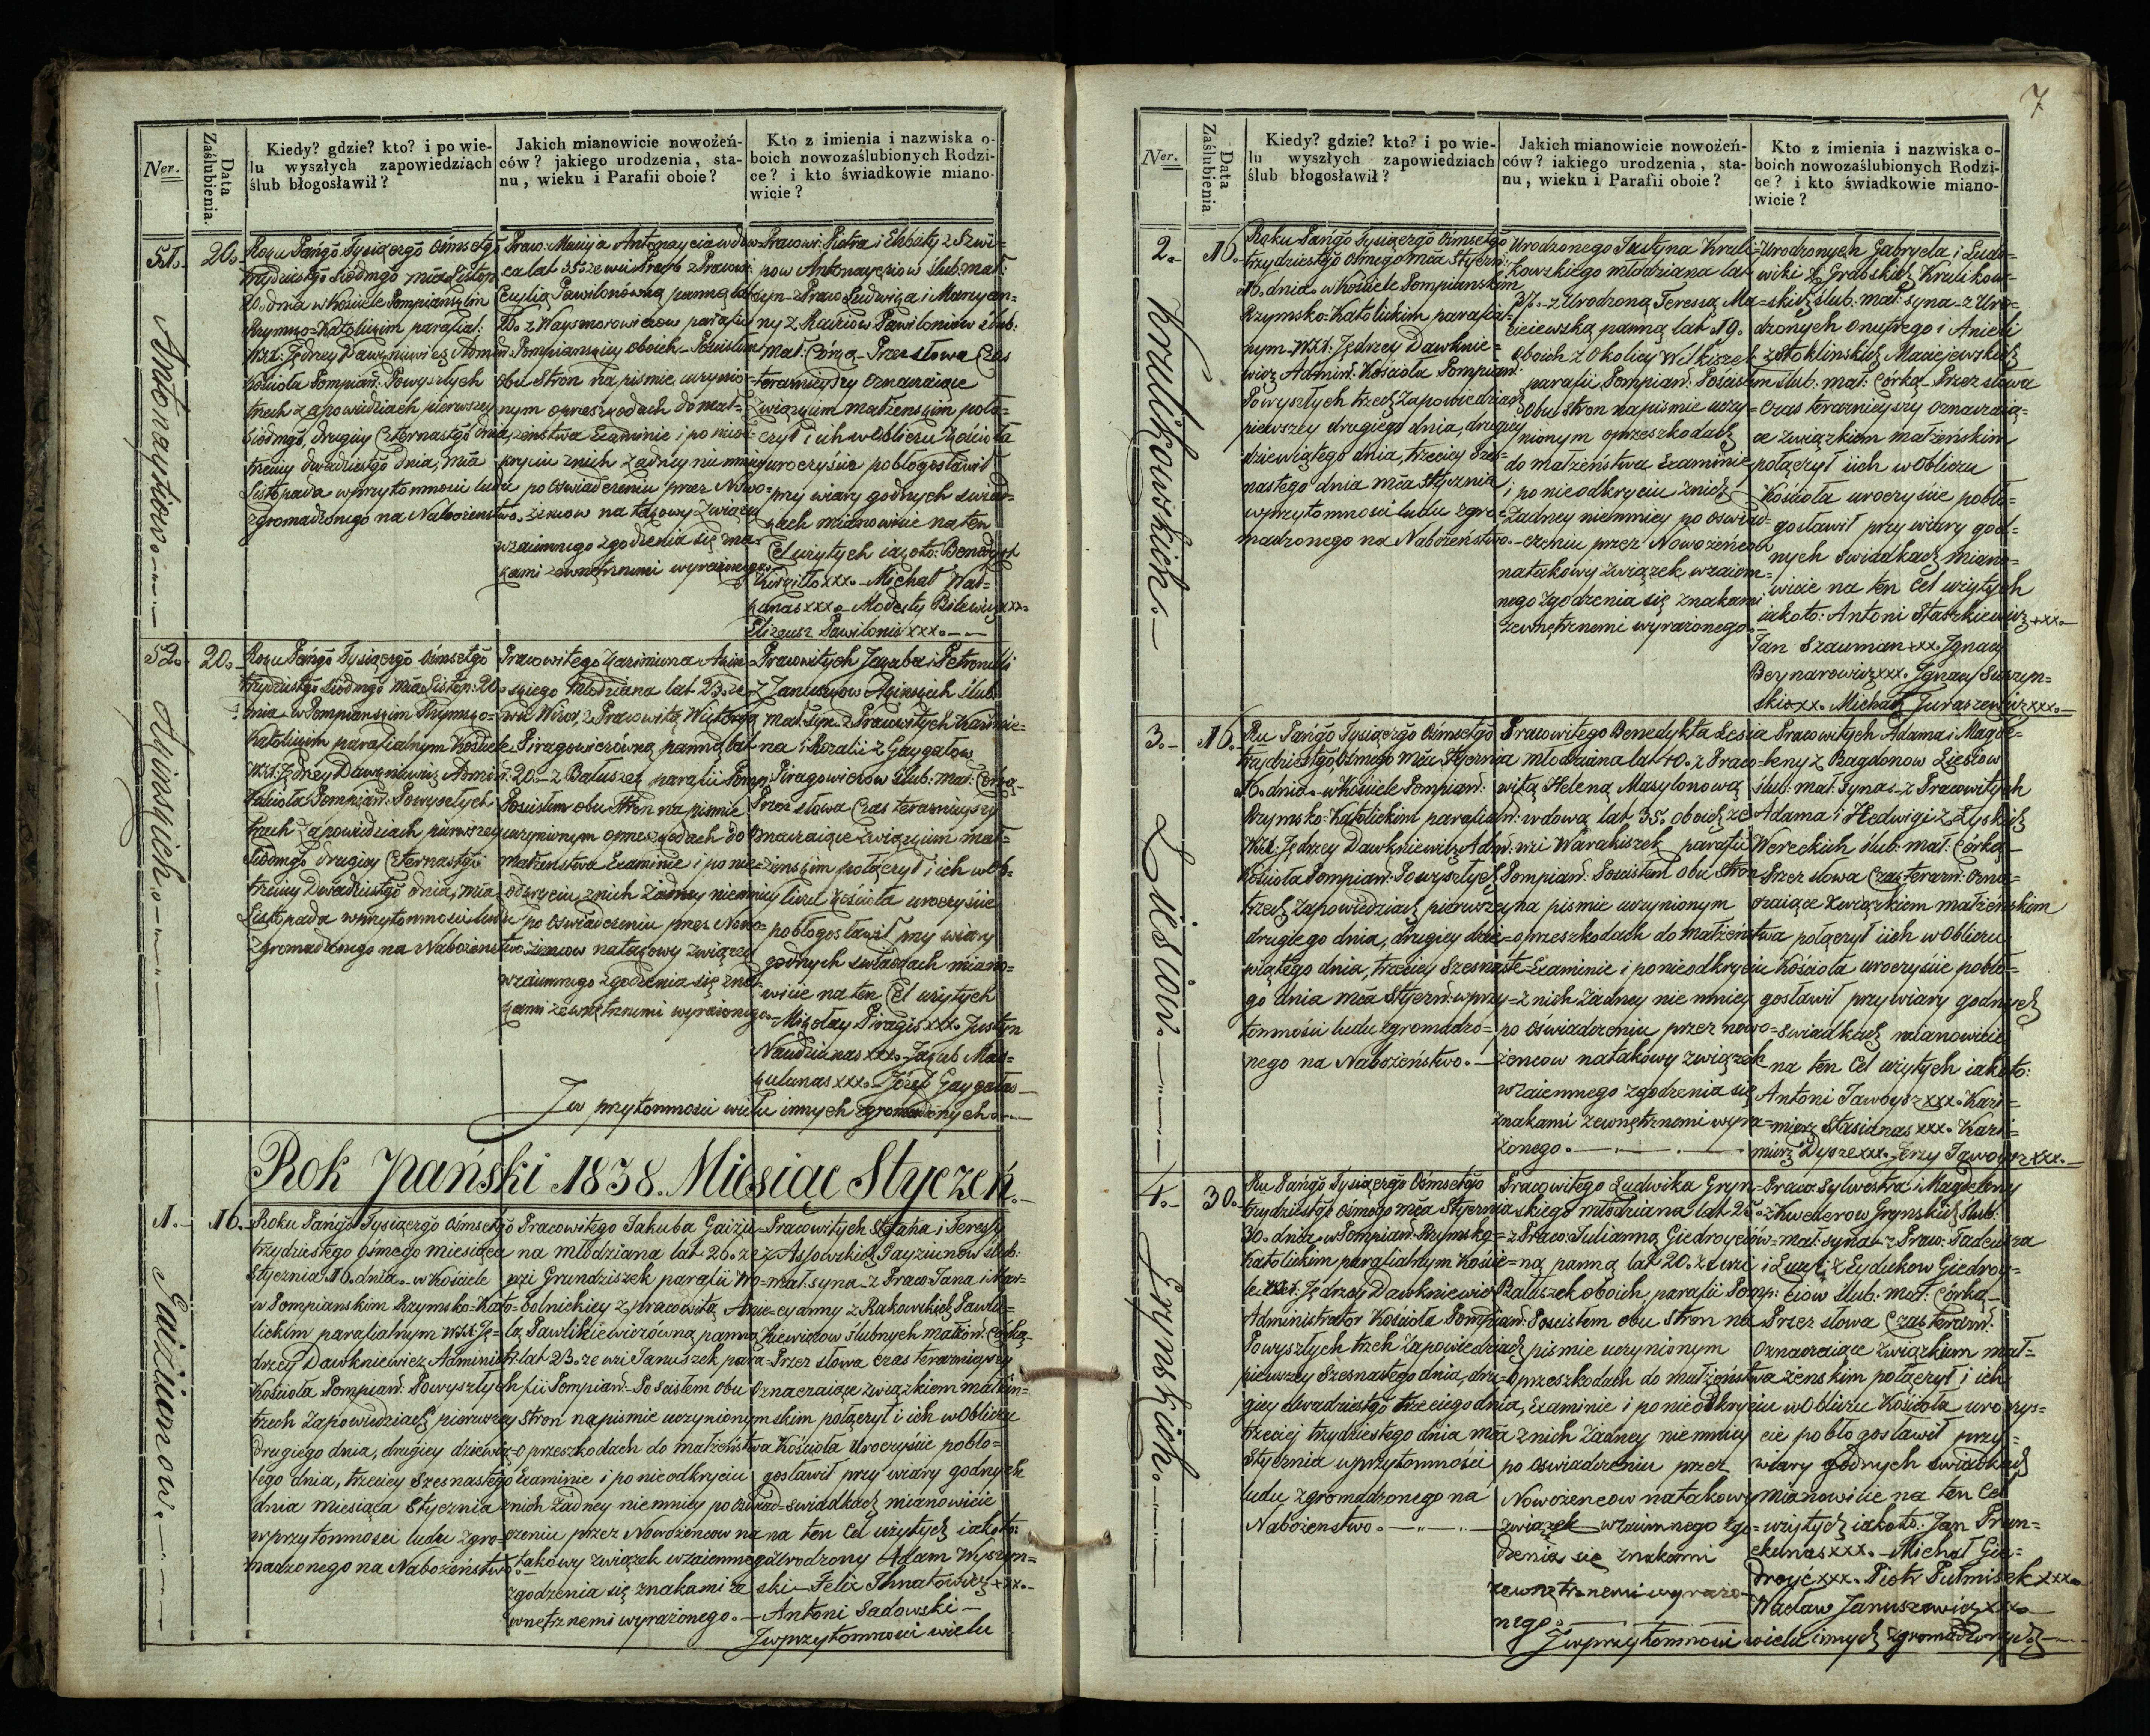 Ner.
Data Zaślubienia.
Kiedy? gdzie? kto? i po wie-
lu wyszłych zapowiedziach
ślub błogosławił?
Jakich mianowicie nowożeń-
ców? jakiego urodzenia, sta-
nu, wieku i Parafii oboie?
Kto z imienia i nazwiska o-
boich nowozaślubionych Rodzi-
ce? i kto świadkowie miano-
wicie?
51.
20.
Antonaytiow.
Roku Pańgo Tysiącgo Ośmsetgo
trzydziestgo siodmgo mca Listop
20. dnia w Kościele Pompiańskim
Rzymsko=Katolickim parafial:
Jędrzey Dawkniewicz Admin
Kościoła Pompian: Po wyszłych
trzech zapowiedziach pierwszey
siodmgo, drugiey czternastgo dnia
trzeciey dwudziestgo dnia, mca
Listopada w przytomnosci ludu
zgromadzonego na Nabożenstwo.
obu Stron na pismie uczynio=
nym o przeszkodach do mał=
żenstwa Examinie i po nieod=
kryciu z nich żadney niemniey
po Oswiadczeniu przez Nowo=
żencow na takowy Związek
wzaiemnego zgodzenia się zna=
kami zewnętrznemi wyrażonego.
Mał: Córką_ Przez słowa Czas
teraznieyszy Oznaczaiące
związkiem małżenskim połą=
czył i ich w Obliczu Kościoła
uroczyście pobłogosławił
przy wiary godnych Swiad=
kach mianowicie na ten
Cel użytych iakoto: Benedykt
xxx. Michał
xxx. Modesty Bilewicz xxx.
Elizeusz Pawilonis xxx.
52.
20.
Aginskich.
Roku Pańgo Tysiącgo Ośmsetgo
trzydziestgo siodmgo mca Listop: 20.
dnia w Pompianskim Rzymsko=
Katolickim parafialnym Kościele
Jędrzey Dawkniewicz Admin:
Kościoła Pompian: Po wyszłych
trzech Zapowiedziach pierwszey
siodmgo drugiey Czternastgo
trzeciey Dwudziestgo dnia, mca
Listopada w przytomnosci ludu
Zgromadzonego na Nabożenstwo
Pracowitego Kazimierza Agin=
skiego Młodziana lat 23. ze
wsi Wisor, z Pracowitą Wiktorią
Piragowiczówną panną lat
20. z Bałuszek parafii Pomp:
Po scisłem obu Stron na pismie
uczynionym o przeszkodach do
małżenstwa Examinie i po nie=
odkryciu z nich żadney niemniey
po Oswiadczeniu przez Nowo=
żencow na takowy związek
wzaiemnego zgodzenia się zna=
kami zewnętrznemi wyrażonego.
Pracowitych Jakuba i Petronelli
z Januszow Aginskich Slub:
mał: Syn. z Pracowitych Kazimie=
na i Rozalii z Gaygałow
Piragowiczow Slub: mał: Córką_
Przez słowa Czas teraznieyszy
Oznaczaiące związkiem mał=
żenskim połączył i ich w Ob=
liczu Kościoła uroczyście
pobłogosławił przy wiary
godnych swiadkach miano=
wicie na ten Cel użytych
Mikołay Piragis xxx. Justyn
Naudziunas xxx. Jakub Mas=
kulunas xxx. Józef Gaygałas
I w przytomnosci wielu innych zgromadzonych.
Rok Pański 1838. Miesiąc Styczeń.
1.
16.
Gaiziunow.
Roku Pańgo Tysiącgo Ośmsetgo
trzydziestego ósmego miesiąca
Stycznia 16. dnia w Kościele
w Pompianskim Rzymsko=Kato=
lickim parafialnym Ję=
drzey Dawkniewicz Administr:
Kościoła Pompian: Po wyszłych
trzech Zapowiedziach pierwszey
drugiego dnia, drugiey dziewią=
tego dnia, trzeciey szesnastego
dnia miesiąca Stycznia
w przytomnosci ludu zgro=
madzonego na Nabożeństwo.
Pracowitego Jakuba Gaiziu=
na młodziana lat 26. ze
wsi Grundziszek parafii Wo=
bolnickiey z pracowitą Anie=
lą Pawlikiewiczówną panną
lat 23. ze wsi Januszek para=
fii Pompian: Po Scisłem obu
Stron na pismie uczynionym
o przeszkodach do małżeństwa
Examinie i po nieodkryciu
z nich żadney niemniey po Oswiad=
czeniu przez Nowożencow na
takowy związek wzaiemnego
zgodzenia się znakami ze
wnętrznemi wyrażonego.
Pracowitych Stefana i Teressy
z Assowskich Gayziunow Ślub:
mał: syna z Praco: Jana i Mar=
cyanny z Rakowskich Pawli=
kiewiczow Ślubnych małżon: Córką_
Przez słowa czas teraznieyszy
Oznaczaiące związkiem małżen=
skim połączył i ich w Obliczu
Kościoła Uroczyście pobło=
gosławił przy wiary godnych
swiadkach mianowicie
na ten Cel użytych iakoto:
Urodzony Adam Wyszyn=
ski_ Felix Ihnatowicz xxx.
Antoni Sadowski
I w przytomnosci wielu
7
Ner.
Data Zaślubienia
Kiedy? gdzie? kto? i po wie-
lu wyszłych zapowiedziach
ślub błogosławił?
Jakich mianowicie nowożeń-
ców? iakiego urodzenia, sta-
nu, wieku i Parafii oboie?
Kto z imienia i nazwiska o-
boich nowozaślubionych Rodzi-
ce? i kto świadkowie miano-
wicie?
2.
16.
Krulikowskich.
Roku Pańgo Tysiącgo Ośmsetgo
trzydziestgo ósmego mca Styczn:
16. dnia w Kościele Pompianskim
Rzymsko=Katolickim parafial=
nym Jędrzey Dawknie=
wicz Admin: Kościoła Pompian:
Po wyszłych trzech Zapowiedziach
pierwszey drugiego dnia, drugiey
dziewiątego dnia, trzeciey szes=
nastego dnia mca Stycznia
w przytomnosci ludu zgro=
madzonego na Nabożeństwo.
Urodzonego Justyna Kruli=
kowskiego młodziana lat
37. z Urodzoną Teressą Ma=
cieiewską panną lat 19.
oboich z Okolicy Wilkiszek
parafii Pompian: Po scisłem
Obu stron na pismie uczy=
nionym o przeszkodach
do małżeństwa Examinie
i po nieodkryciu z nich
żadney niemniey po oswiad=
czeniu przez Nowożeńcow
na takowy związek wzaiem=
nego zgodzenia się znakami
zewnętrznemi wyrażonego
Urodzonych Gabryela i Ludo=
wiki z Grabskich Krulikow=
skich ślub: mał: syna z Uro=
dzonych Onufrego i Anieli
z Stoklinskich Macieiewskich
ślub: mał: córką_ Przez słowa
czas teraznieyszy oznaczaią=
ce związkiem małżeńskim
połączył i ich w Obliczu
Kościoła uroczyście pobło=
gosławił przy wiary god=
nych swiadkach miano=
wicie na ten Cel użytych
iakoto: Antoni Staszkiewicz xxx.
Jan Szauman xxx. Ignacy
Beynarowicz xxx. Ignacy
Michał Juraszewicz xxx.
3.
16.
Liesiow.
Ru Pańgo Tysiącgo Ośmsetgo
trzydziestgo Ósmego mca Stycznia
16. dnia w Kościele Pompian:
Rzymsko=Katolickim parafialn:
Jędrzey Dawkniewicz Adm:
Kościoła Pompian: Po wyszłych
trzech zapowiedziach pierwszey
drugiego dnia, drugiey dzie=
wiątego dnia, trzeciey Szesnaste=
go dnia mca Styczn: w przy=
tomności ludu zgromadzo=
nego na Nabożeństwo.
Pracowitego Benedykta Lesia
młodziana lat 40. z Praco=
witą Heleną Masylonową
wdową lat 35. oboich ze
wsi Warakiszek parafii
Pompian: Po scisłem obu Stron
na pismie uczynionym
o przeszkodach do małżeństwa
Examinie i po nieodkryciu
z nich żadney nie mniey
po Oświadczeniu przez nowo=
żencow na takowy związek
wzaiemnego zgodzenia się
znakami zewnętrznemi wyra=
żonego.
Pracowitych Adama i Magda=
leny z Bagdonow Liesiow
ślub: mał: Syna z Pracowitych
Adama i Hedwigi z Łyskich
Wereckich ślub: mał: Córką_
Przez słowa Czas terazn: Ozna=
czaiące związkiem małżeńskim
połączył i ich w Obliczu
Kościoła uroczyście pobło=
gosławił przy wiary godnych
swiadkach mianowicie
na ten Cel użytych iakoto:
Antoni xxx. Kazi=
mierz Stasiunas xxx. Kazi=
mierz Dysze xxx. Jerzy xxx.
4.
30.
Grynskich.
Ru Pańgo Tysiącgo Ośmsetgo
trzydziestgo ósmego mca Stycznia
30. dnia w Pompian: Rzymsko=
Katolickim parafialnym Koście=
le Jędrzey Dawkniewicz
Administrator Kościoła Pompian:
Po wyszłych trzech Zapowiedziach
pierwszey szesnastego dnia, dru=
giey dwudziestgo trzeciego dnia,
trzeciej trzydziestego dnia mca
Stycznia w przytomności
ludu zgromadzonego na
Nabożenstwo.
Pracowitego Ludwika Gryn=
skiego młodziana lat 25.
z Praco: Julianną Giedroyciów=
ną panną lat 20. z wsi
Bałuszek oboich parafii Pomp:
Po scisłem obu Stron na
pismie uczynionym
o przeszkodach do małżeństwa
Examinie i po nieodkryciu
z nich żadney nie mniey
po oswiadczeniu przez
Nowożencow na takowy
związek wzaiemnego zgo=
dzenia się znakami
zewnętrznemi wyrażo=
nego.
Praco: Sylwestra i Magdaleny
z Kwederow Grynskich Slub:
mał: syna z Praco: Tadeusza
i z Łydukow Giedroy=
ciow ślub: mał: córką_
Przez słowa Czas terazn:
Oznaczaiące związkiem mał=
żenskim połączył i ich
w Obliczu Kościoła uroczys=
cie pobłogosławił przy
wiary godnych swiadkach
mianowicie na ten Cel
użytych iakoto: Jan
xxx. Michał Gie=
droyć xxx. Piotr Pulmisek xxx.
Wacław Januszewicz xxx.
I w przytomnosci wielu innych zgromadzonych